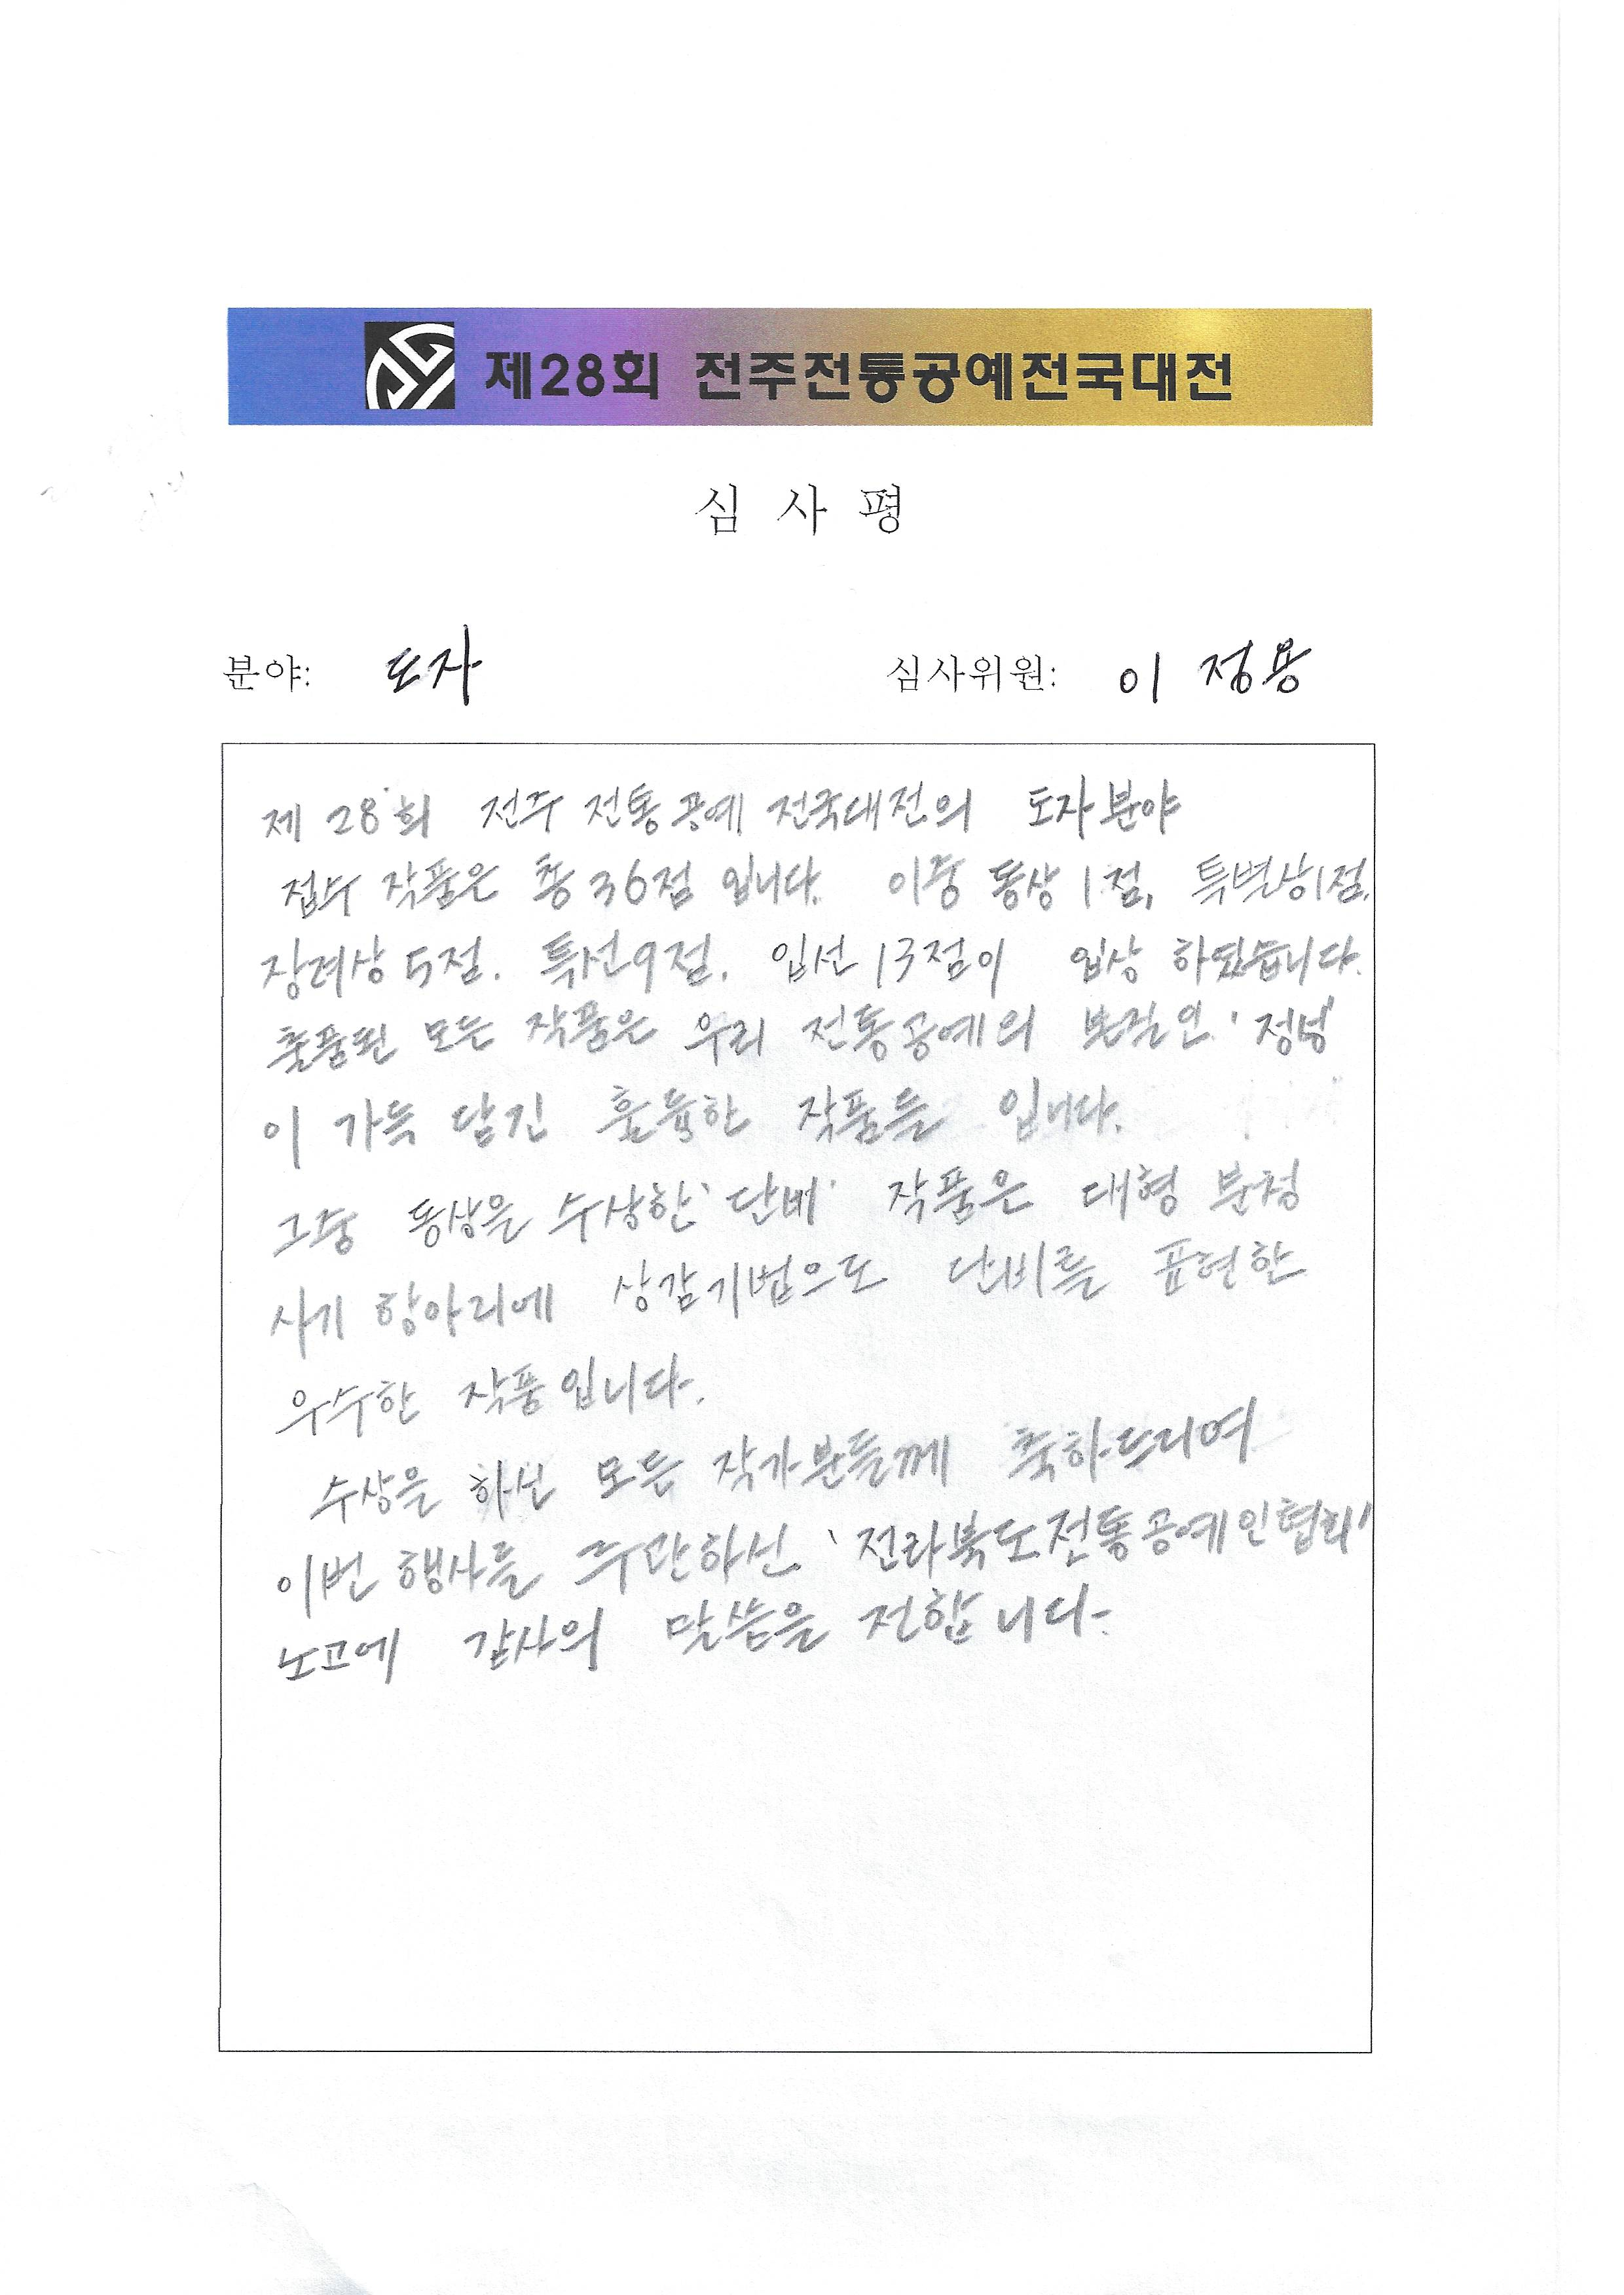 제28회 전주전통공예전국대전
심 사 평
분야: 도자 심사위원: 이 정용
제 28회 전주 전통공예 전국대전의 도자분야
접수 작품은 총 36점 입니다. 이중 동상 1점, 특별상1점.
장려상 5점. 특선9점. 입선 13점이 입상 하였습니다.
출품된 모든 작품은 우리 전통공예의 본질인 '정성'
이 가득 담긴 훌륭한 작품들 입니다.
그중 동상을 수상한 '단비' 작품은 대형 분청
사기 항아리에 상감기법으로 단비를 표현한
우수한 작품입니다.
수상을 하신 모든 작가분들께 축하드리며
이번 행사를 주관하신 '전라북도전통공예인협회'
노고에 감사의 말씀을 전합니다.